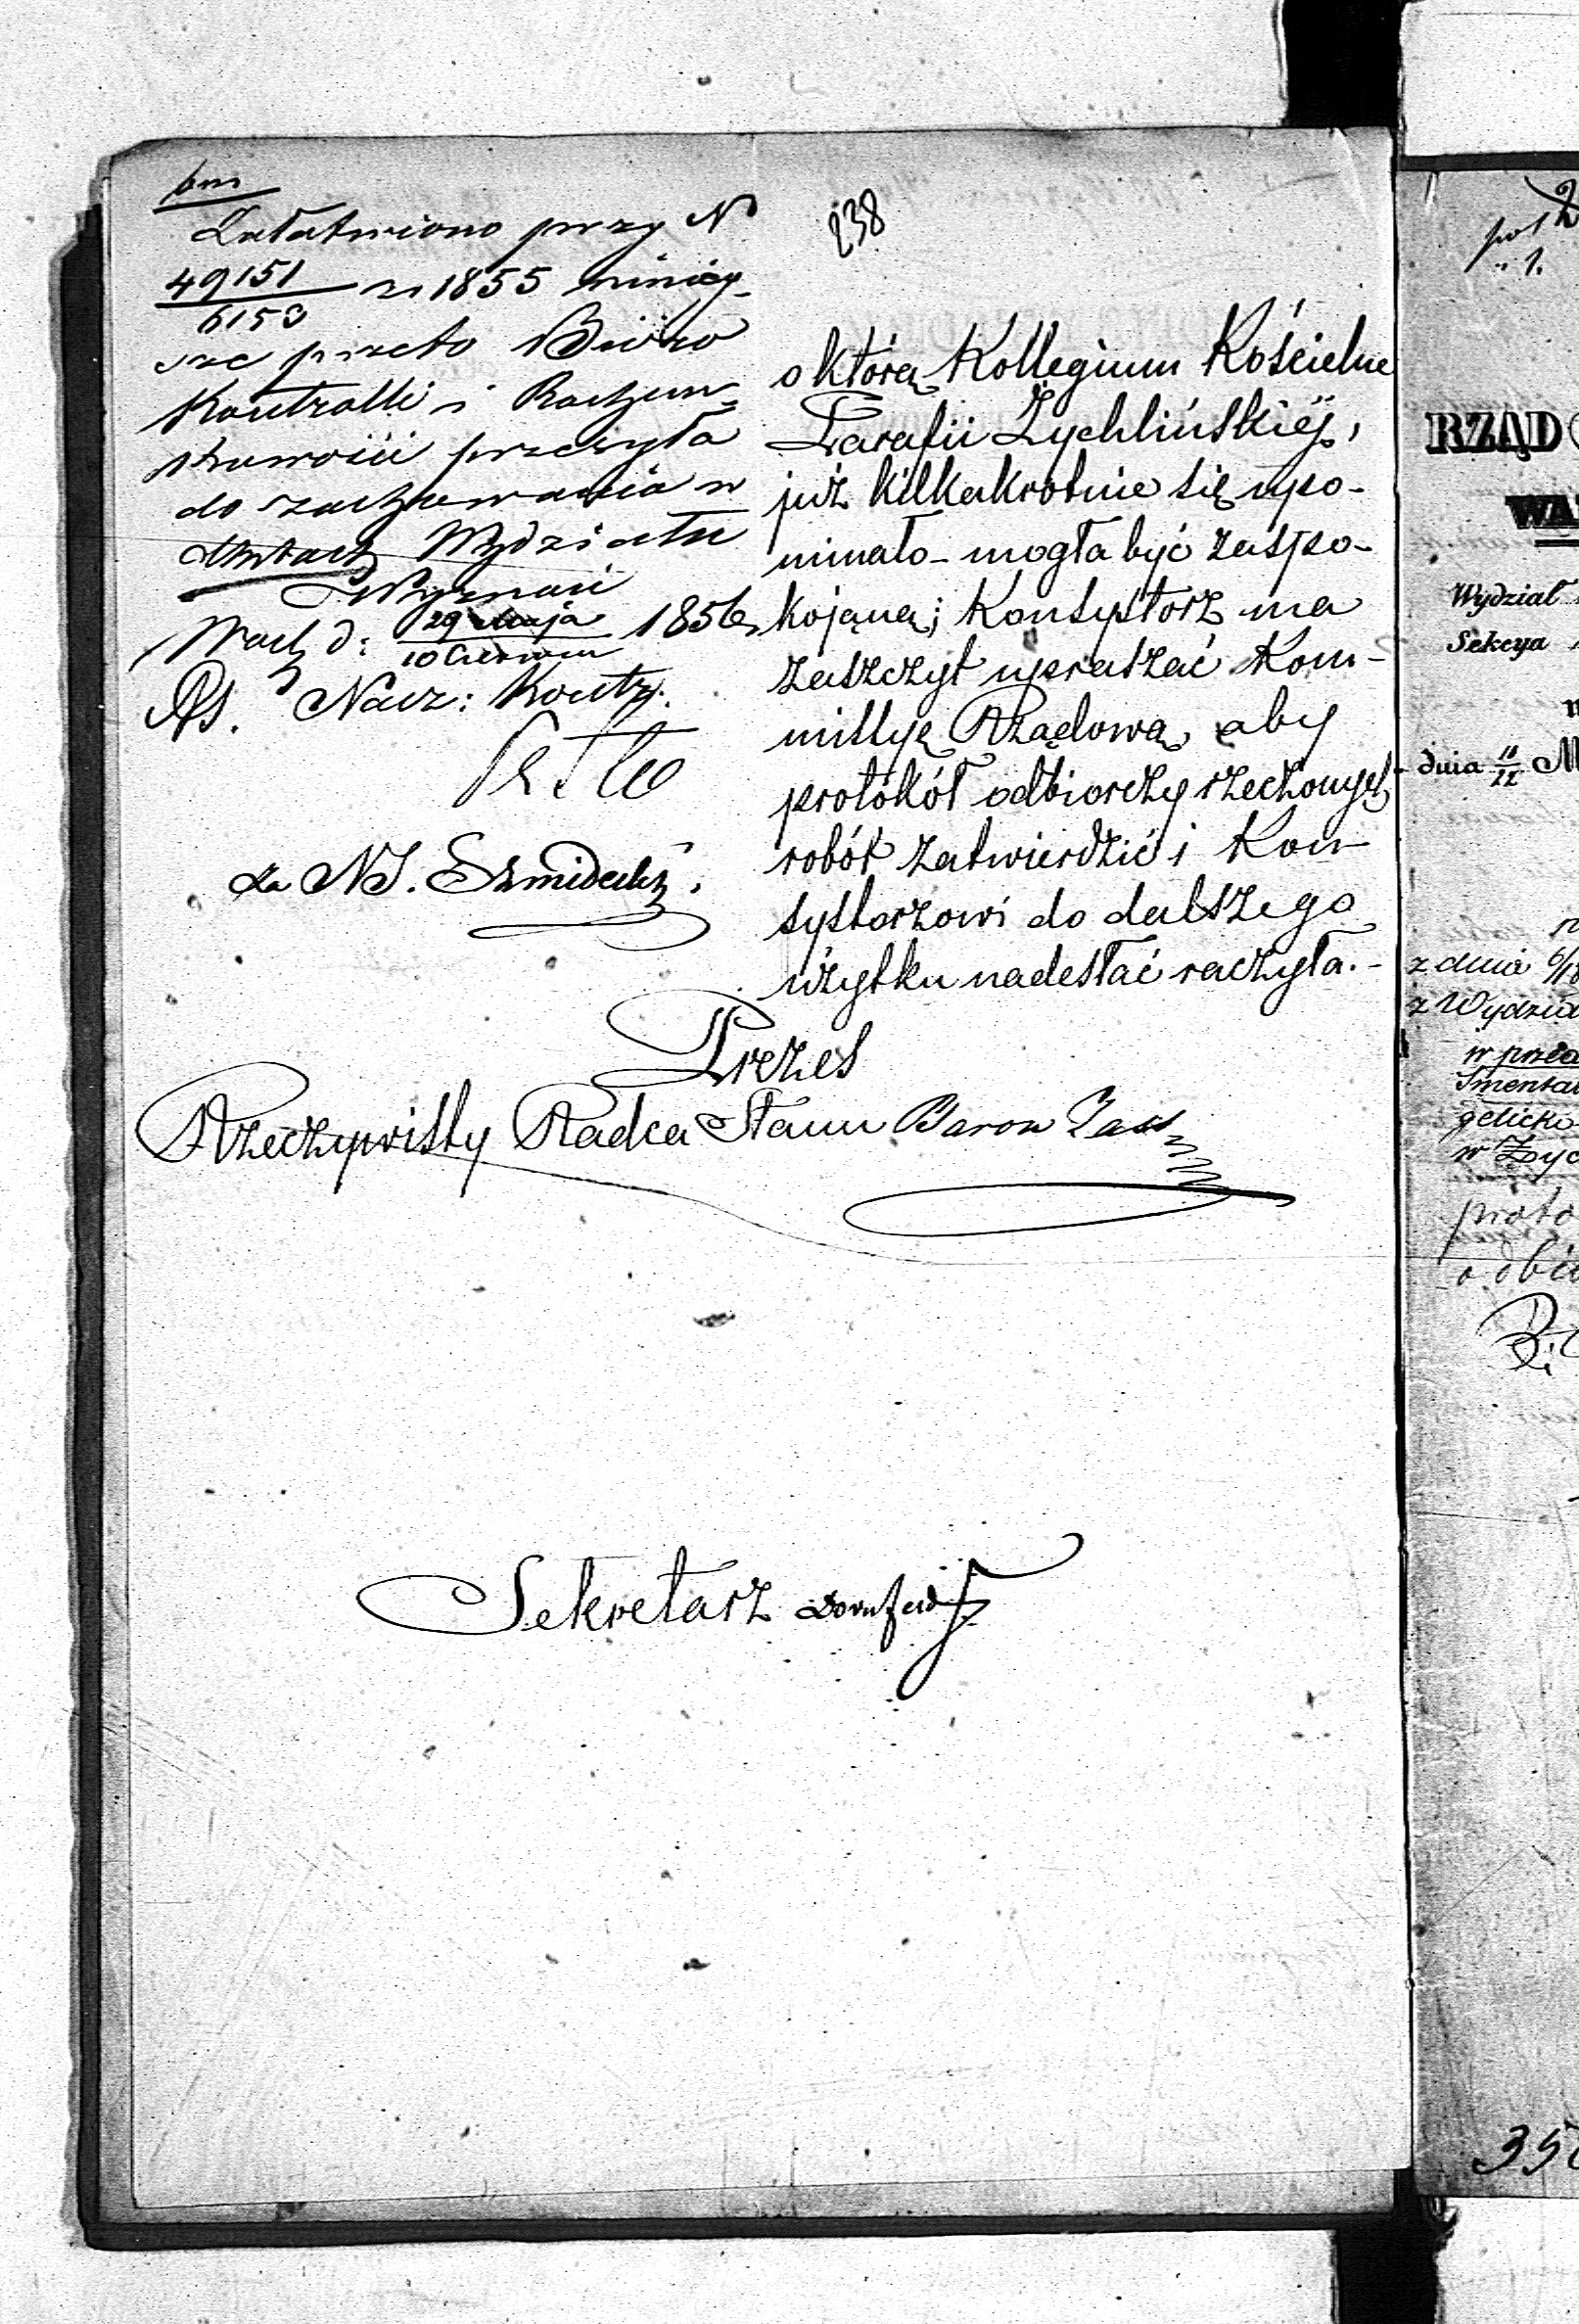 Załatwiono przy N
49151
6153
z 1855 niniey-
sze przeto Bióro
Kontrolli i Rachun-
kowości przesyła
do zachowania w
Aktach Wydziału
Wyznań
Warsz d: 29 Maja 1856
10 Czerwca
Nacz: Kontr.
za NS.
238
o którą Kollegium Kościelne
Parafii Żychlińskiéj,
już kilkakrotnie się upo-
minało - mogła być zaspo-
kojoną; Konsystorz ma
zaszczyt upraszać Kom-
missyę Rządową, aby
protokół odbiorczy rzeczonych
robót zatwierdzić i Kon-
systorzowi do dalszego
użytku nadesłać raczyła.-
Prezes
Rzeczywisty Radca Stanu Baron
Sekretarz
RZĄD
WA
Wydział
Sekcya
dnia M
z dnia
z Wydzia
w
proto
odbi